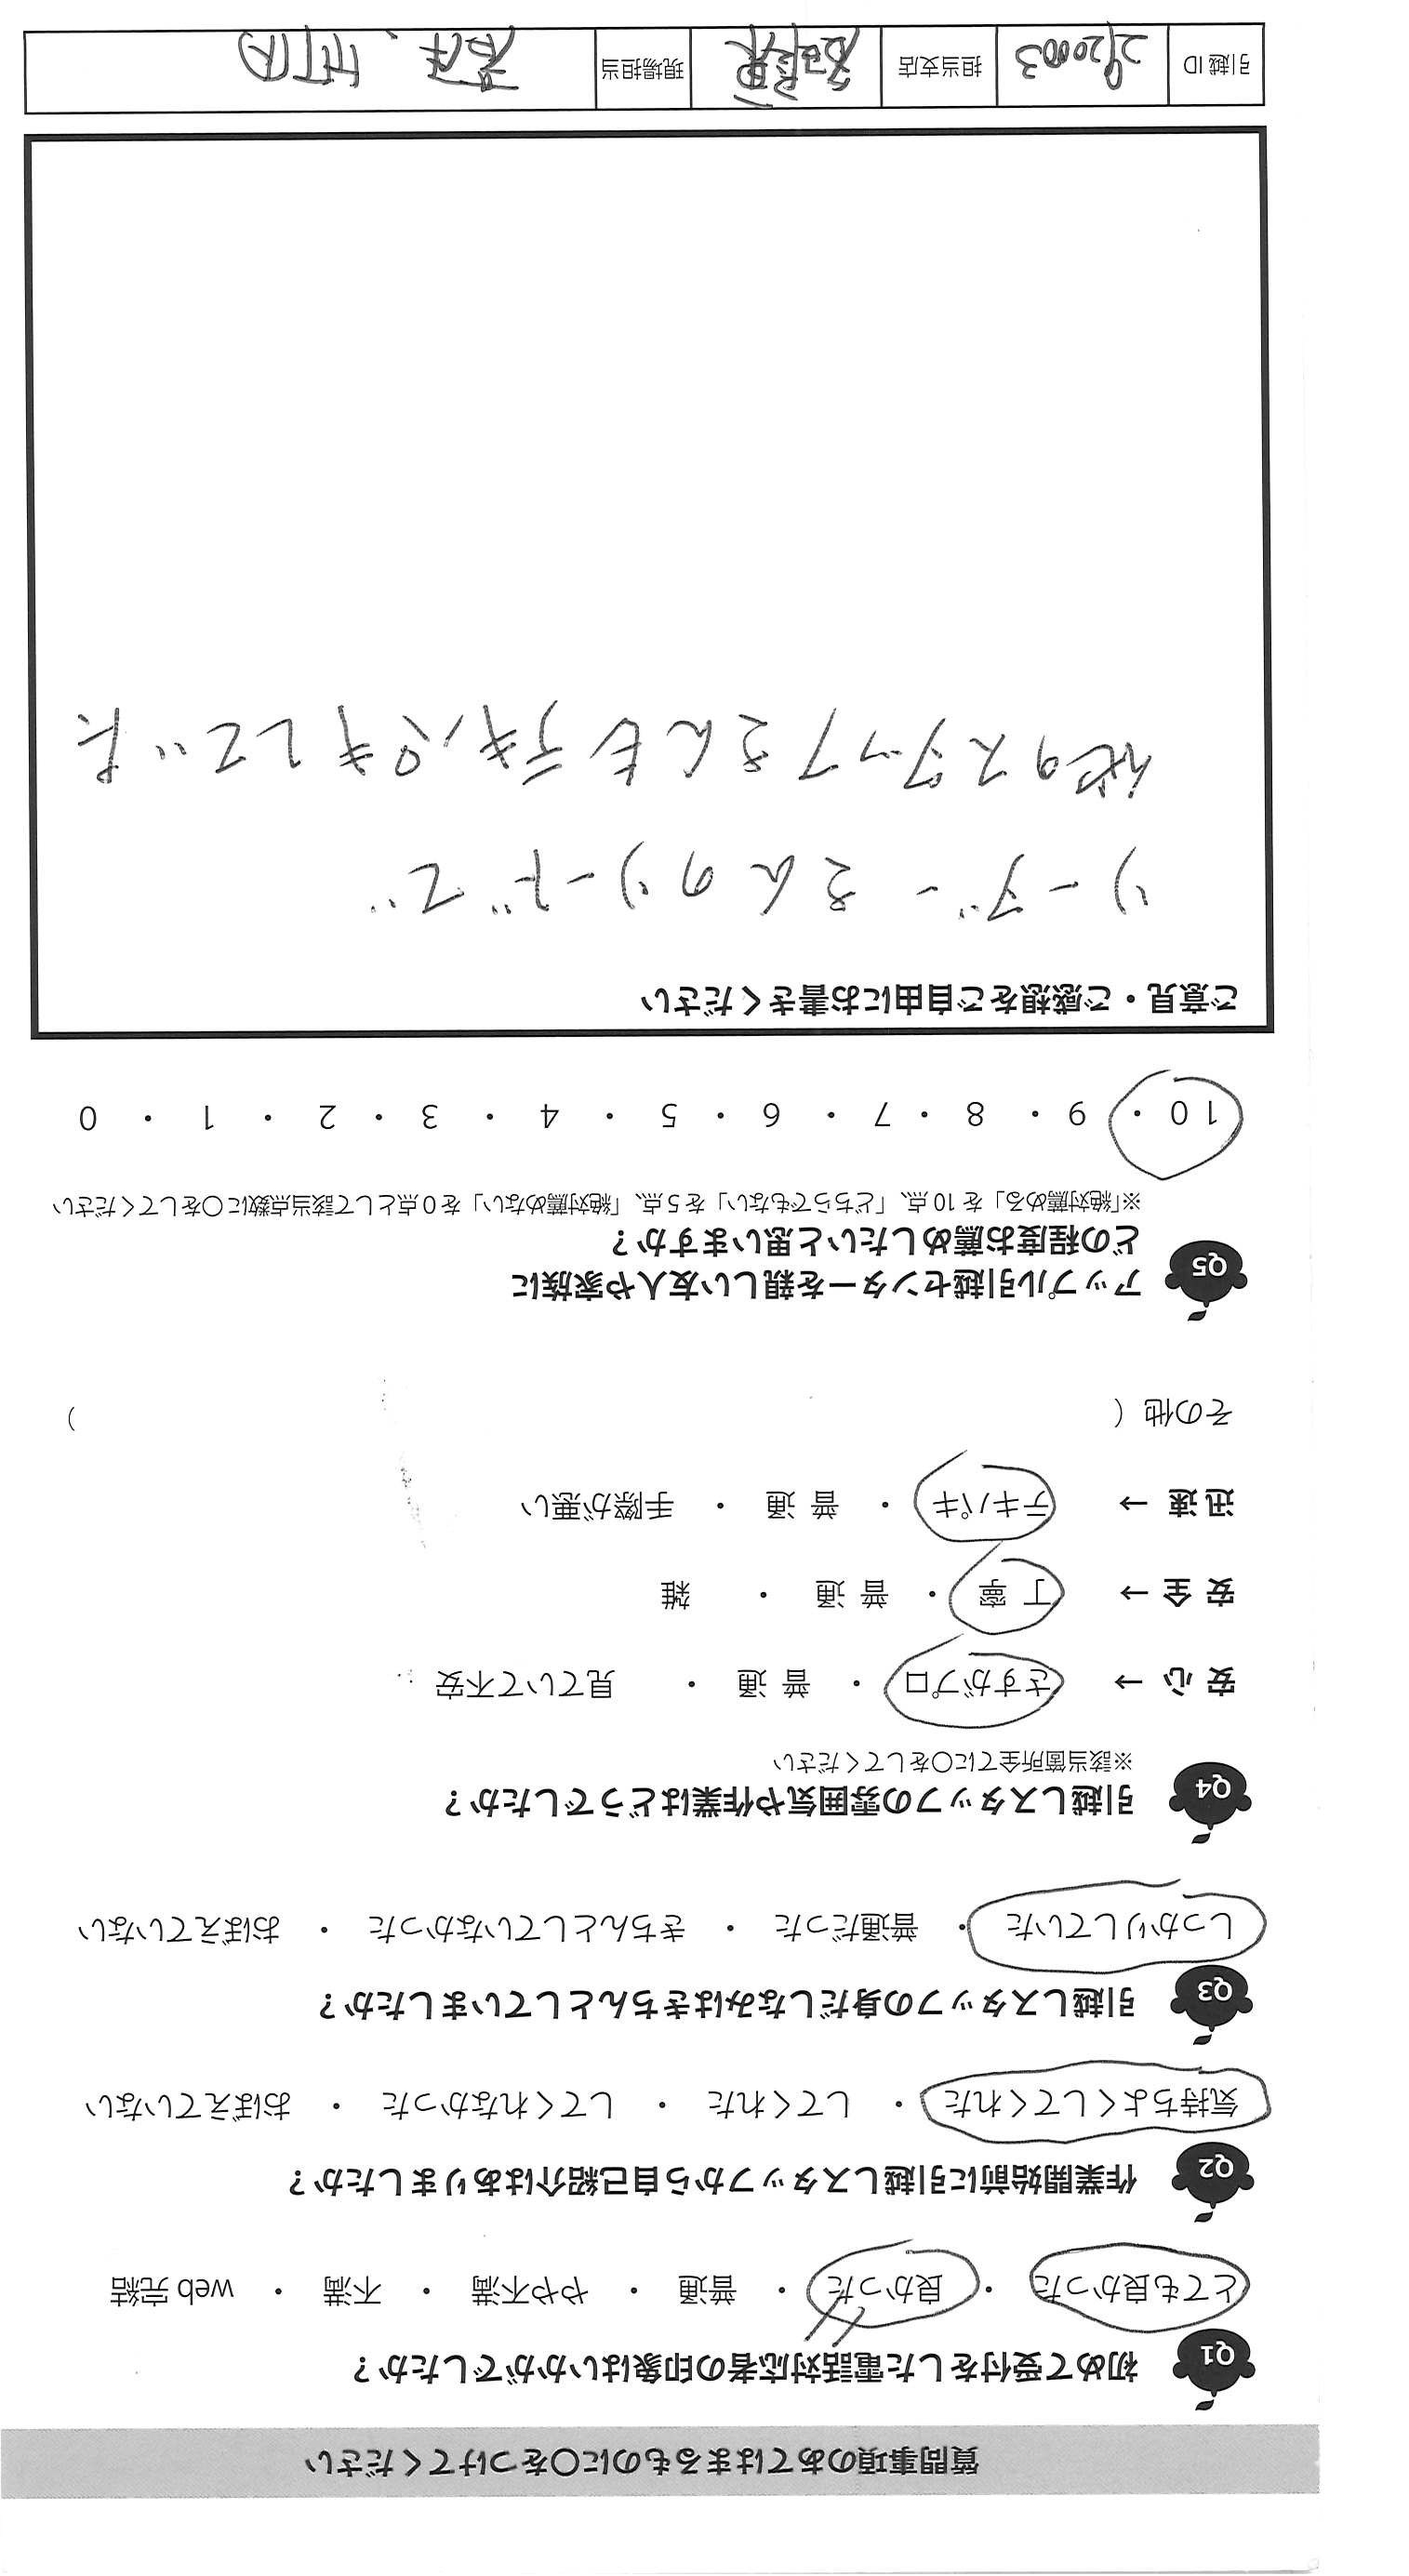 質問事項のあてはまるものに〇をつけてください
Q1 初めて受付をした電話対応者の印象はいかがでしたか？
とても良かった ・ 良かった ・ 普通 ・ やや不満 ・ 不満 ・ web 完結
Q2 作業開始前に引越しスタッフから自己紹介はありましたか？
気持ちよくしてくれた ・ してくれた ・ してくれなかった ・ おぼえていない
Q3 引越しスタッフの身だしなみはきちんとしていましたか？
しっかりしていた ・ 普通だった ・ きちんとしていなかった ・ おぼえていない
Q4 引越しスタッフの雰囲気や作業はどうでしたか？
※該当箇所全てに〇をしてください
安 心 → さすがプロ ・ 普 通 ・ 見ていて不安
安 全 → 丁 寧 ・ 普 通 ・ 雑
迅 速 → テキパキ ・ 普 通 ・ 手際が悪い
その他（ ）
Q5 アップル引越センターを親しい友人や家族に
どの程度お薦めしたいと思いますか？
※「絶対薦める」を 10 点、「どちらでもない」を 5 点、「絶対薦めない」を 0 点として該当点数に〇をしてください
10 ・ 9 ・ 8 ・ 7 ・ 6 ・ 5 ・ 4 ・ 3 ・ 2 ・ 1 ・ 0
ご意見・ご感想をご自由にお書きください
リーダーさんのリードで
他のスタッフさんもテキパキしていた
引越 ID 2920003 担当支店 現場担当